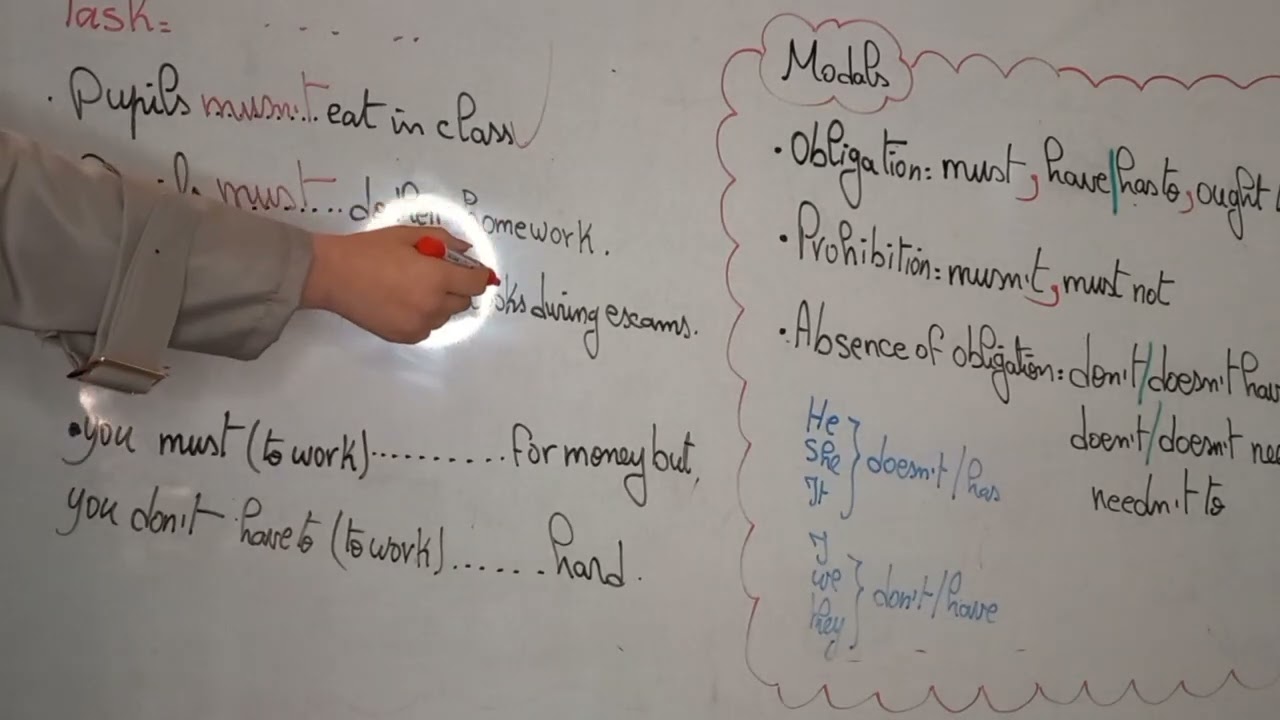 Task:
. Pupils musn't eat in class
must.... do their homework.
during exams.
• you must (to work).......... for money but,
you don't have to (to work)....... hard.
Modals
• Obligation: must, have/has to, ought
• Prohibition: musn't, must not
• Absence of obligation: don't/doesn't
doen't/doesn't
needn't to
He
She
It
doesn't/has
I
we
they
don't/have